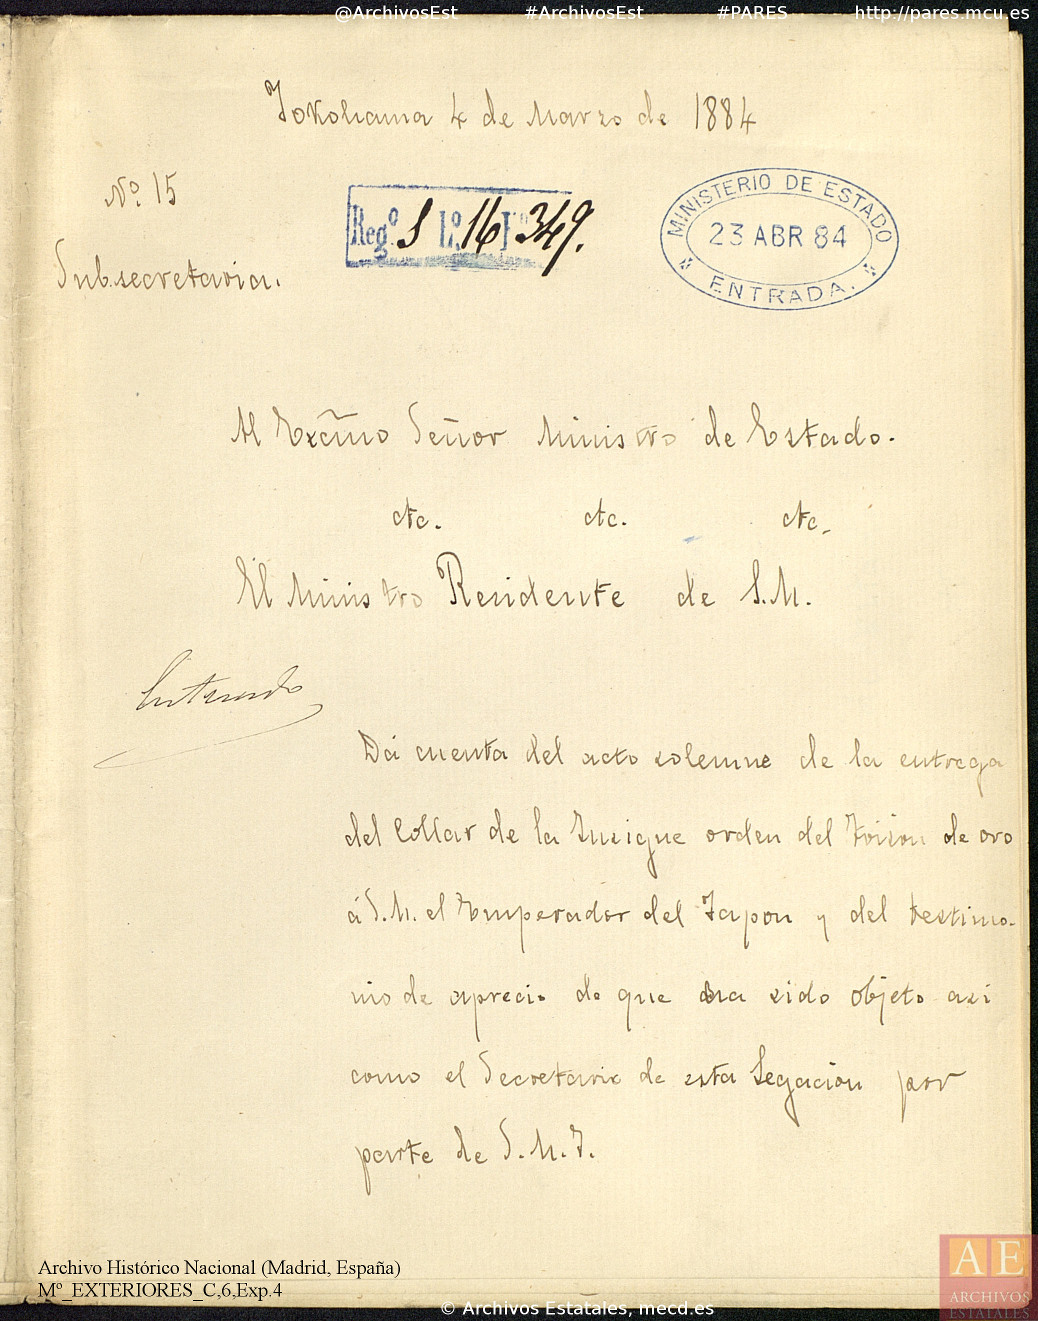 @ArchivosEst #ArchivosEst #PARES http://pares.mcu.es
Yokohama 4 de Marzo de 1884
Nº. 15
Regº. S Lº. 16 Fº 349.
MINISTERIO DE ESTADO
23 ABR 84
ENTRADA.
Subsecretaria.
Al Excmo Señor Ministro de Estado.
etc. etc. etc.
El Ministro Residente de S.M.
Enterado
Dá cuenta del acto solemne de la entrega
del Collar de la Insigne orden del Toison de oro
á S.M. el Emperador del Japon y del testimo-
nio de aprecio de que ha sido objeto asi
como el Secretario de esta Legacion por
parte de S.M.I.
Archivo Histórico Nacional (Madrid, España)
Mº_EXTERIORES_C,6,Exp.4
© Archivos Estatales, mecd.es
AE
ARCHIVOS
ESTATALES